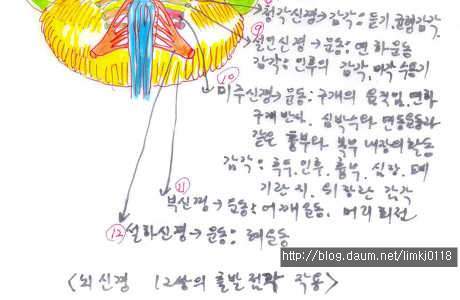 → 청각신경→감각: 듣기, 균형감각.
⑨ 설인신경→운동: 연하운동
감각: 인두의 감각, 미각수용기
⑩ 미주신경→운동: 구개의 움직임, 연하
구개반사, 심박수와 연동운동과
같은 흉부와 복부 내장의 활동
감각: 후두, 인후, 흉부, 심장, 폐
기관지, 위장관 감각
⑪ 부신경→운동: 어깨운동, 머리회전
⑫ 설하신경→운동: 혀운동
http://blog.daum.net/limkj0118
<뇌신경 12쌍의 출발점과 작용>